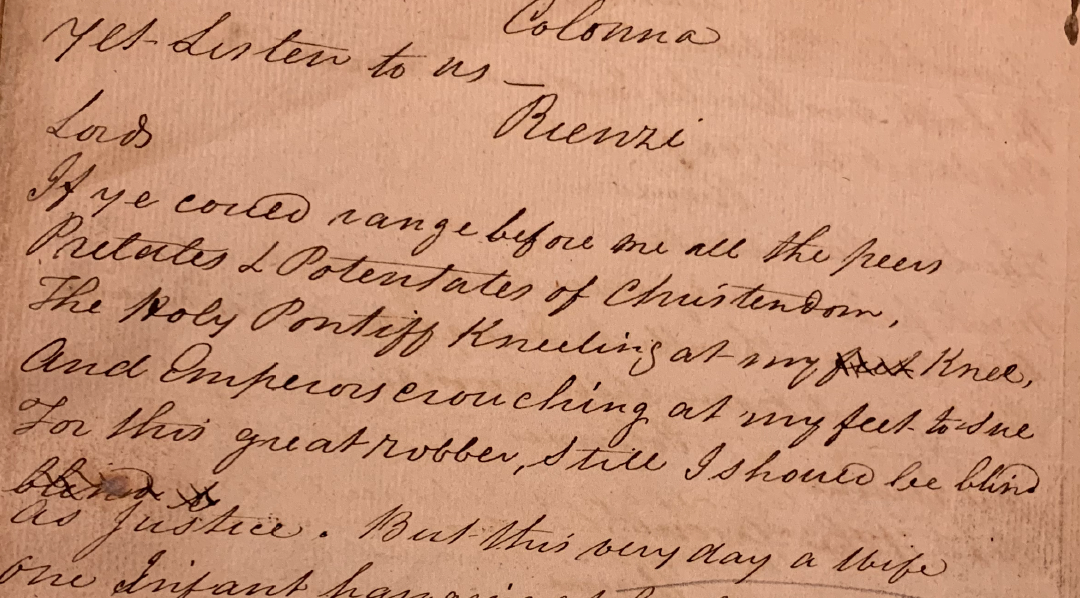 Colonna
Yet Listen to us—
Rienzi
Lords
If ye could range before me all the peers
Prelates & Potentates of Christendom,
The Holy Pontiff Kneeling at my feet Knee,
And Emperors crouching at my feet to sue
For this great robber, still I should be blind
blind
as Justice. But this very day a wife
one Infant hanging at her